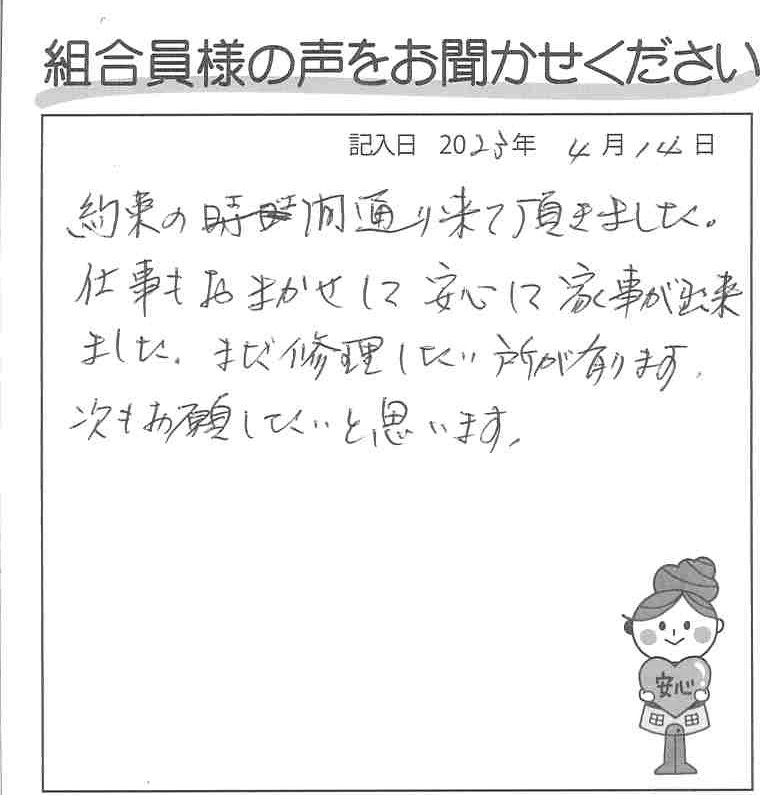 組合員様の声をお聞かせください
記入日 2023年 4月14日
約束の時間通り来て頂きました。
仕事もおまかせして安心して家事が出来
ました。まだ修理したい所が有ります。
次もお願いしたいと思います。
安心